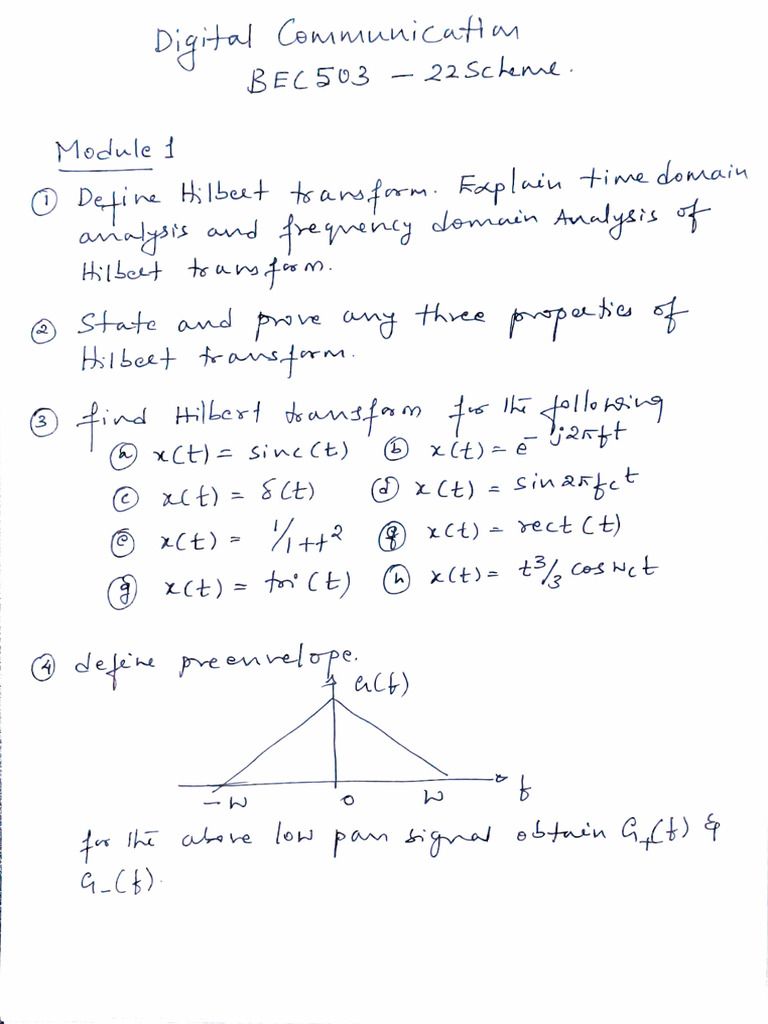 Digital Communication
BEC503 - 22Scheme.
Module 1
① Define Hilbert transform. Explain time domain
analysis and frequency domain Analysis of
Hilbert transform.
② State and prove any three properties of
Hilbert transform.
③ find Hilbert transform for the following
ⓐ x(t) = sinc(t) ⓑ x(t) = e^-j2πft
ⓒ x(t) = δ(t) ⓓ x(t) = sin2πfct
ⓔ x(t) = 1/1+t² ⓕ x(t) = rect(t)
ⓖ x(t) = tri(t) ⓗ x(t) = t³/3 cos wct
④ define preenvelope.
G(f)
-W 0 W f
for the above low pass signal obtain G+(f) &
G-(f).